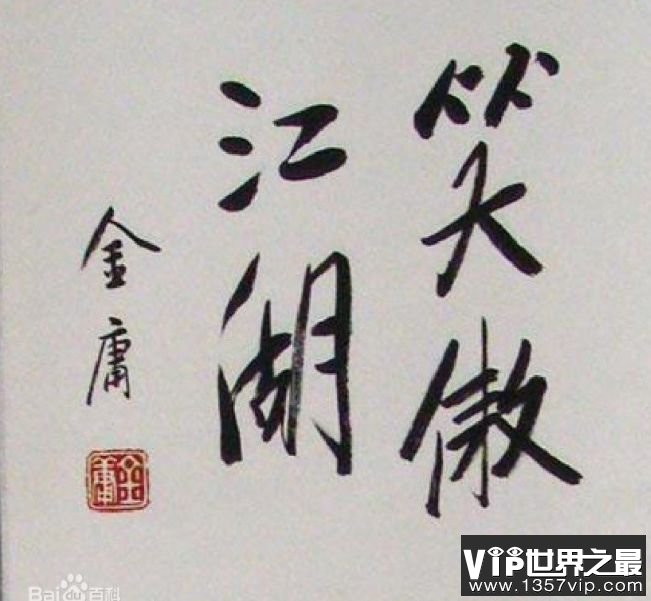 笑傲
江湖
金庸
金庸
Bai百科
VIP世界之最
www.1357vip.com